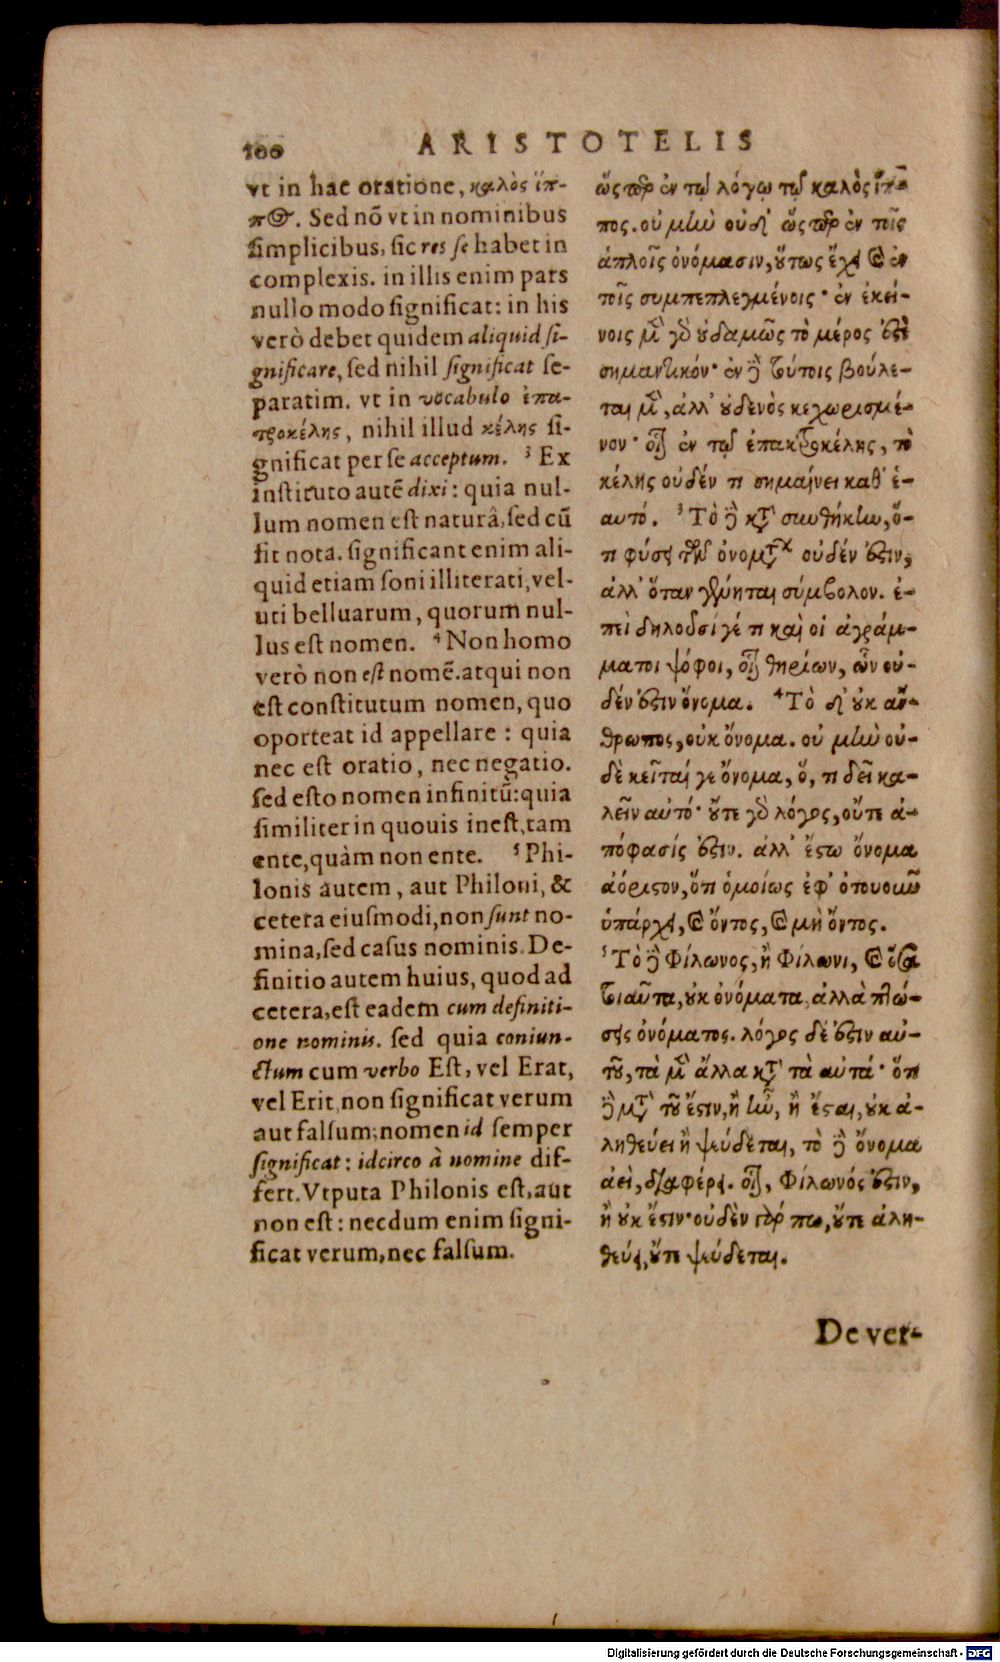 100 ARISTOTELIS
vt in hac oratione, καλὸς ἵπ-
πος. Sed nõ vt in nominibus
ſimplicibus, ſic res ſe habet in
complexis. in illis enim pars
nullo modo ſignificat: in his
verò debet quidem aliquid ſi-
gnificare, ſed nihil ſignificat ſe-
paratim. vt in vocabulo ἐπα-
τροκέλης, nihil illud κέλης ſi-
gnificat per ſe acceptum. ³ Ex
inſtituto autē dixi: quia nul-
lum nomen eſt naturâ, ſed cũ
ſit nota. ſignificant enim ali-
quid etiam ſoni illiterati, vel-
uti belluarum, quorum nul-
lus eſt nomen. ⁴ Non homo
verò non eſt nomē. atqui non
eſt conſtitutum nomen, quo
oporteat id appellare: quia
nec eſt oratio, nec negatio.
ſed eſto nomen infinitũ: quia
ſimiliter in quouis ineſt, tam
ente, quàm non ente. ⁵ Phi-
lonis autem, aut Philoni, &
cetera eiuſmodi, non ſunt no-
mina, ſed caſus nominis. De-
finitio autem huius, quod ad
cetera, eſt eadem cum definiti-
one nominis. ſed quia coniun-
ctum cum verbo Eſt, vel Erat,
vel Erit, non ſignificat verum
aut falſum; nomen id ſemper
ſignificat: idcirco à nomine dif-
fert. Vtputa Philonis eſt, aut
non eſt: necdum enim ſigni-
ficat verum, nec falſum.
ὥσπερ ἐν τῷ λόγῳ τῷ καλὸς ἵπ-
πος. οὐ μὴν οὐδ' ὥσπερ ἐν τοῖς
ἁπλοῖς ὀνόμασιν, οὕτως ἔχει καὶ ἐν
τοῖς συμπεπλεγμένοις· ἐν ἐκεί-
νοις μὲν γὰρ οὐδαμῶς τὸ μέρος ἐστὶ
σημαντικόν· ἐν δὲ τούτοις βούλε-
ται μὲν, ἀλλ' οὐδενὸς κεχωρισμέ-
νον· οἷον ἐν τῷ ἐπακτροκέλης, τὸ
κέλης οὐδέν τι σημαίνει καθ' ἑ-
αυτό. ³ Τὸ δὲ κατὰ συνθήκην, ὅ-
τι φύσει τῶν ὀνομάτων οὐδέν ἐστιν,
ἀλλ' ὅταν γένηται σύμβολον. ἐ-
πεὶ δηλοῦσί γέ τι καὶ οἱ ἀγράμ-
ματοι ψόφοι, οἷον θηρίων, ὧν οὐ-
δέν ἐστιν ὄνομα. ⁴ Τὸ δ' οὐκ ἄν-
θρωπος, οὐκ ὄνομα. οὐ μὴν οὐ-
δὲ κεῖταί γε ὄνομα, ὅ, τι δεῖ κα-
λεῖν αὐτό· οὔτε γὰρ λόγος, οὔτε ἀ-
πόφασίς ἐστιν. ἀλλ' ἔστω ὄνομα
ἀόριστον, ὅτι ὁμοίως ἐφ' ὁτουοῦν
ὑπάρχει, καὶ ὄντος, καὶ μὴ ὄντος.
⁵ Τὸ δὲ Φίλωνος, ἢ Φίλωνι, καὶ ὅσα
τοιαῦτα, οὐκ ὀνόματα, ἀλλὰ πτώ-
σεις ὀνόματος. λόγος δέ ἐστιν αὐ-
τοῦ, τὰ μὲν ἄλλα κατὰ τὰ αὐτά· ὅτι
δὲ μετὰ τοῦ ἔστιν, ἢ ἦν, ἢ ἔσται, οὐκ ἀ-
ληθεύει ἢ ψεύδεται, τὸ δὲ ὄνομα
ἀεὶ, διαφέρει. οἷον, Φίλωνός ἐστιν,
ἢ οὐκ ἔστιν· οὐδὲν γάρ πω, οὔτε ἀλη-
θεύει, οὔτε ψεύδεται.
De ver-
Digitalisierung gefördert durch die Deutsche Forschungsgemeinschaft - DFG